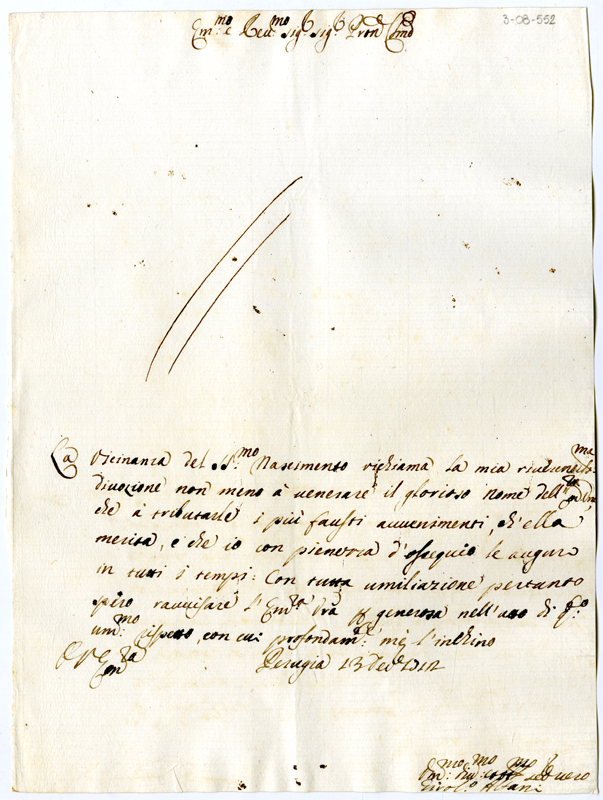 3-08-552
Em.mo e Rev.mo Sig.r Sig.r Pron Col.mo
La Vicinanza del SS.mo Nascimento richiama la mia riverentis.ma
divozione non meno à venerare il glorioso nome dell' Em.za Vra,
che à tributarle i più fausti avvenimenti, ch'ella
merita, e che io con pienezza d'ossequio le auguro
in tutti i tempi: Con tutta umiliazione pertanto
spero ravvisare l'Em.za Vra generosa nell'atto di q.to
um.mo rispetto, con cui profondam.e mè l'inchino
Perugia 13 Dec.e
Em.za
Um.mo Div.mo Serv.re vero
Albani